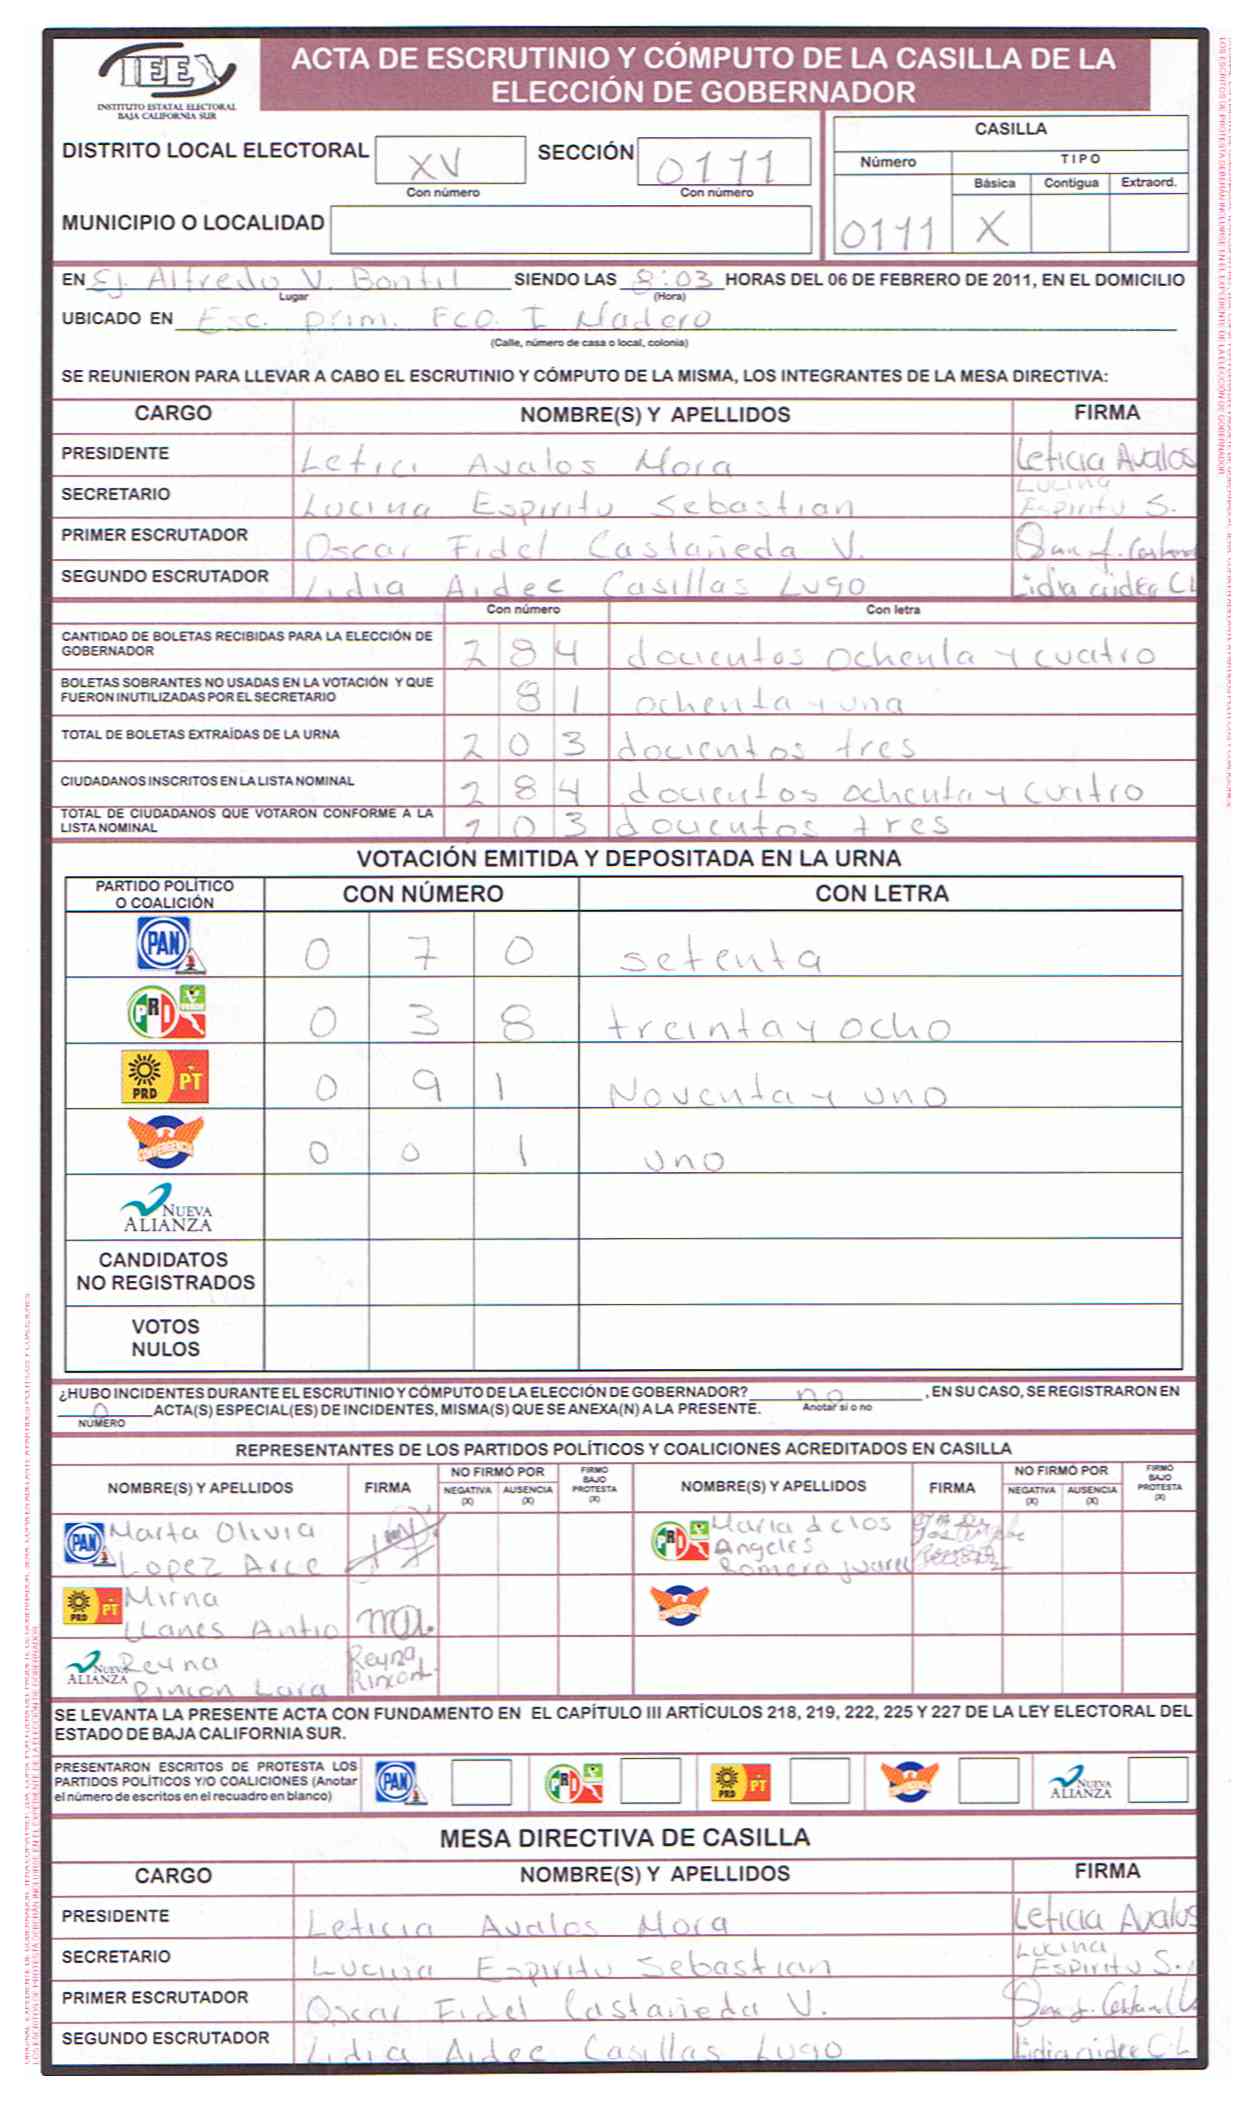 IEE
INSTITUTO ESTATAL ELECTORAL
BAJA CALIFORNIA SUR
ACTA DE ESCRUTINIO Y CÓMPUTO DE LA CASILLA DE LA
ELECCIÓN DE GOBERNADOR
DISTRITO LOCAL ELECTORAL XV SECCIÓN 0111
Con número Con número
MUNICIPIO O LOCALIDAD
CASILLA
Número TIPO
Básica Contigua Extraord.
0111 X
EN Ej. Alfredo V. Bonfil SIENDO LAS 8:03 HORAS DEL 06 DE FEBRERO DE 2011, EN EL DOMICILIO
Lugar (Hora)
UBICADO EN Esc. prim. Fco. I Madero
(Calle, número de casa o local, colonia)
SE REUNIERON PARA LLEVAR A CABO EL ESCRUTINIO Y CÓMPUTO DE LA MISMA, LOS INTEGRANTES DE LA MESA DIRECTIVA:
CARGO NOMBRE(S) Y APELLIDOS FIRMA
PRESIDENTE Letici Avalos Mora Leticia Avalos
SECRETARIO Lucina Espiritu Sebastian Lucina Espiritu S.
PRIMER ESCRUTADOR Oscar Fidel Castañeda V.
SEGUNDO ESCRUTADOR Lidia Aidee Casillas Lugo Lidia aidee C L
Con número Con letra
CANTIDAD DE BOLETAS RECIBIDAS PARA LA ELECCIÓN DE
GOBERNADOR 2 8 4 docientos ochenta y cuatro
BOLETAS SOBRANTES NO USADAS EN LA VOTACIÓN Y QUE
FUERON INUTILIZADAS POR EL SECRETARIO 8 1 ochenta y una
TOTAL DE BOLETAS EXTRAÍDAS DE LA URNA 2 0 3 docientos tres
CIUDADANOS INSCRITOS EN LA LISTA NOMINAL 2 8 4 docientos ochenta y cuatro
TOTAL DE CIUDADANOS QUE VOTARON CONFORME A LA
LISTA NOMINAL 2 0 3 docientos tres
VOTACIÓN EMITIDA Y DEPOSITADA EN LA URNA
PARTIDO POLÍTICO
O COALICIÓN CON NÚMERO CON LETRA
PAN 0 7 0 setenta
PRI VERDE 0 3 8 treinta y ocho
PRD PT 0 9 1 Noventa y uno
CONVERGENCIA 0 0 1 uno
NUEVA
ALIANZA
CANDIDATOS
NO REGISTRADOS
VOTOS
NULOS
¿HUBO INCIDENTES DURANTE EL ESCRUTINIO Y CÓMPUTO DE LA ELECCIÓN DE GOBERNADOR? no , EN SU CASO, SE REGISTRARON EN
0 ACTA(S) ESPECIAL(ES) DE INCIDENTES, MISMA(S) QUE SE ANEXA(N) A LA PRESENTE. Anotar si o no
NÚMERO
REPRESENTANTES DE LOS PARTIDOS POLÍTICOS Y COALICIONES ACREDITADOS EN CASILLA
NOMBRE(S) Y APELLIDOS FIRMA NO FIRMÓ POR NEGATIVA (X) AUSENCIA (X) FIRMO BAJO PROTESTA (X) NOMBRE(S) Y APELLIDOS FIRMA NO FIRMÓ POR NEGATIVA (X) AUSENCIA (X) FIRMO BAJO PROTESTA (X)
PAN Marta Olivia
Lopez Arce
PRI Maria de los
Angeles
Romero Juarez
PRD PT Mirna
Llanes Antio
NUEVA ALIANZA Reyna
Rincon Lara Reyna Rincon
SE LEVANTA LA PRESENTE ACTA CON FUNDAMENTO EN EL CAPÍTULO III ARTÍCULOS 218, 219, 222, 225 Y 227 DE LA LEY ELECTORAL DEL
ESTADO DE BAJA CALIFORNIA SUR.
PRESENTARON ESCRITOS DE PROTESTA LOS
PARTIDOS POLÍTICOS Y/O COALICIONES (Anotar
el número de escritos en el recuadro en blanco)
PAN PRI PRD PT NUEVA ALIANZA
MESA DIRECTIVA DE CASILLA
CARGO NOMBRE(S) Y APELLIDOS FIRMA
PRESIDENTE Leticia Avalos Mora Leticia Avalos
SECRETARIO Lucina Espiritu Sebastian Lucina Espiritu S.
PRIMER ESCRUTADOR Oscar Fidel Castañeda V.
SEGUNDO ESCRUTADOR Lidia Aidee Casillas Lugo Lidia aidee C L